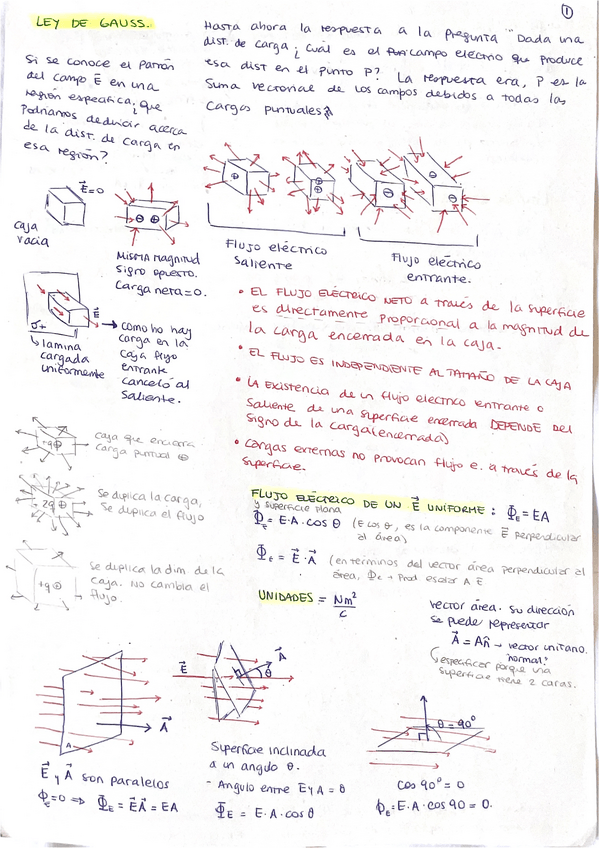 ①
LEY DE GAUSS.
Hasta ahora la respuesta a la pregunta "Dada una
dist. de carga ¿cuál es el campo electrico que produce
esa dist en el punto P? La respuesta era, P es la
Suma vectorial de los campos debidos a todas las
Cargas puntuales
Si se conoce el Patrón
del campo E⃗ en una
región especifica, ¿que
Podriamos deducir acerca
de la dist. de carga en
esa región?
E⃗=0
Caja
vacia
Misma magnitud
Signo opuesto.
Carga neta=0.
Flujo eléctrico
Saliente
Flujo eléctrico
entrante.
E⃗
σ+
lamina
cargada
uniformemente
como no hay
carga en la
Caja flujo
entrante
canceló al
Saliente.
• EL FLUJO ELÉCTRICO NETO a través de la superficie
es directamente proporcional a la magnitud de
la carga encerrada en la caja.
• EL FLUJO ES INDEPENDIENTE AL TAMAÑO DE LA CAJA
• LA existencia de un flujo electrico entrante o
Saliente de una superficie encerrada DEPENDE DEL
Signo de la carga(encerrada)
• Cargas externas no provocan flujo e. a través de la
superficie.
+q⊕ caja que encierra
carga puntual ⊕
2q⊕ Se duplica la carga,
Se duplica el flujo
+q⊕ Se duplica la dim de la
caja. No cambia el
flujo.
FLUJO ELÉCTRICO DE UN E⃗ UNIFORME: Φ_E = EA
y superficie plana
Φ_E = E·A·cos θ (E cos θ, es la componente E⃗ perpendicular
al área)
Φ_E = E⃗·A⃗ (en términos del vector área perpendicular al
área, Φ_E → Prod escalar A E
UNIDADES = Nm²/C
vector área. Su dirección
se puede representar
A⃗ = An̂ → vector unitario.
normal.
especificar porque una
superficie tiene 2 caras.
A A⃗
E⃗ y A⃗ son paralelos
Φ_E=0 ⇒ Φ_E = E⃗A⃗ = EA
E⃗ A⃗ θ
Superficie inclinada
a un angulo θ.
- Angulo entre E y A = θ
Φ_E = E·A·cos θ
θ = 90°
cos 90° = 0
Φ_E = E·A·cos 90 = 0.